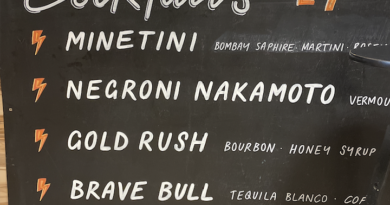 Cocktails
MINETINI BOMBAY SAPHIRE MARTINI ·
NEGRONI NAKAMOTO VERMOU
GOLD RUSH BOURBON · HONEY SYRUP
BRAVE BULL TEQUILA BLANCO · COF